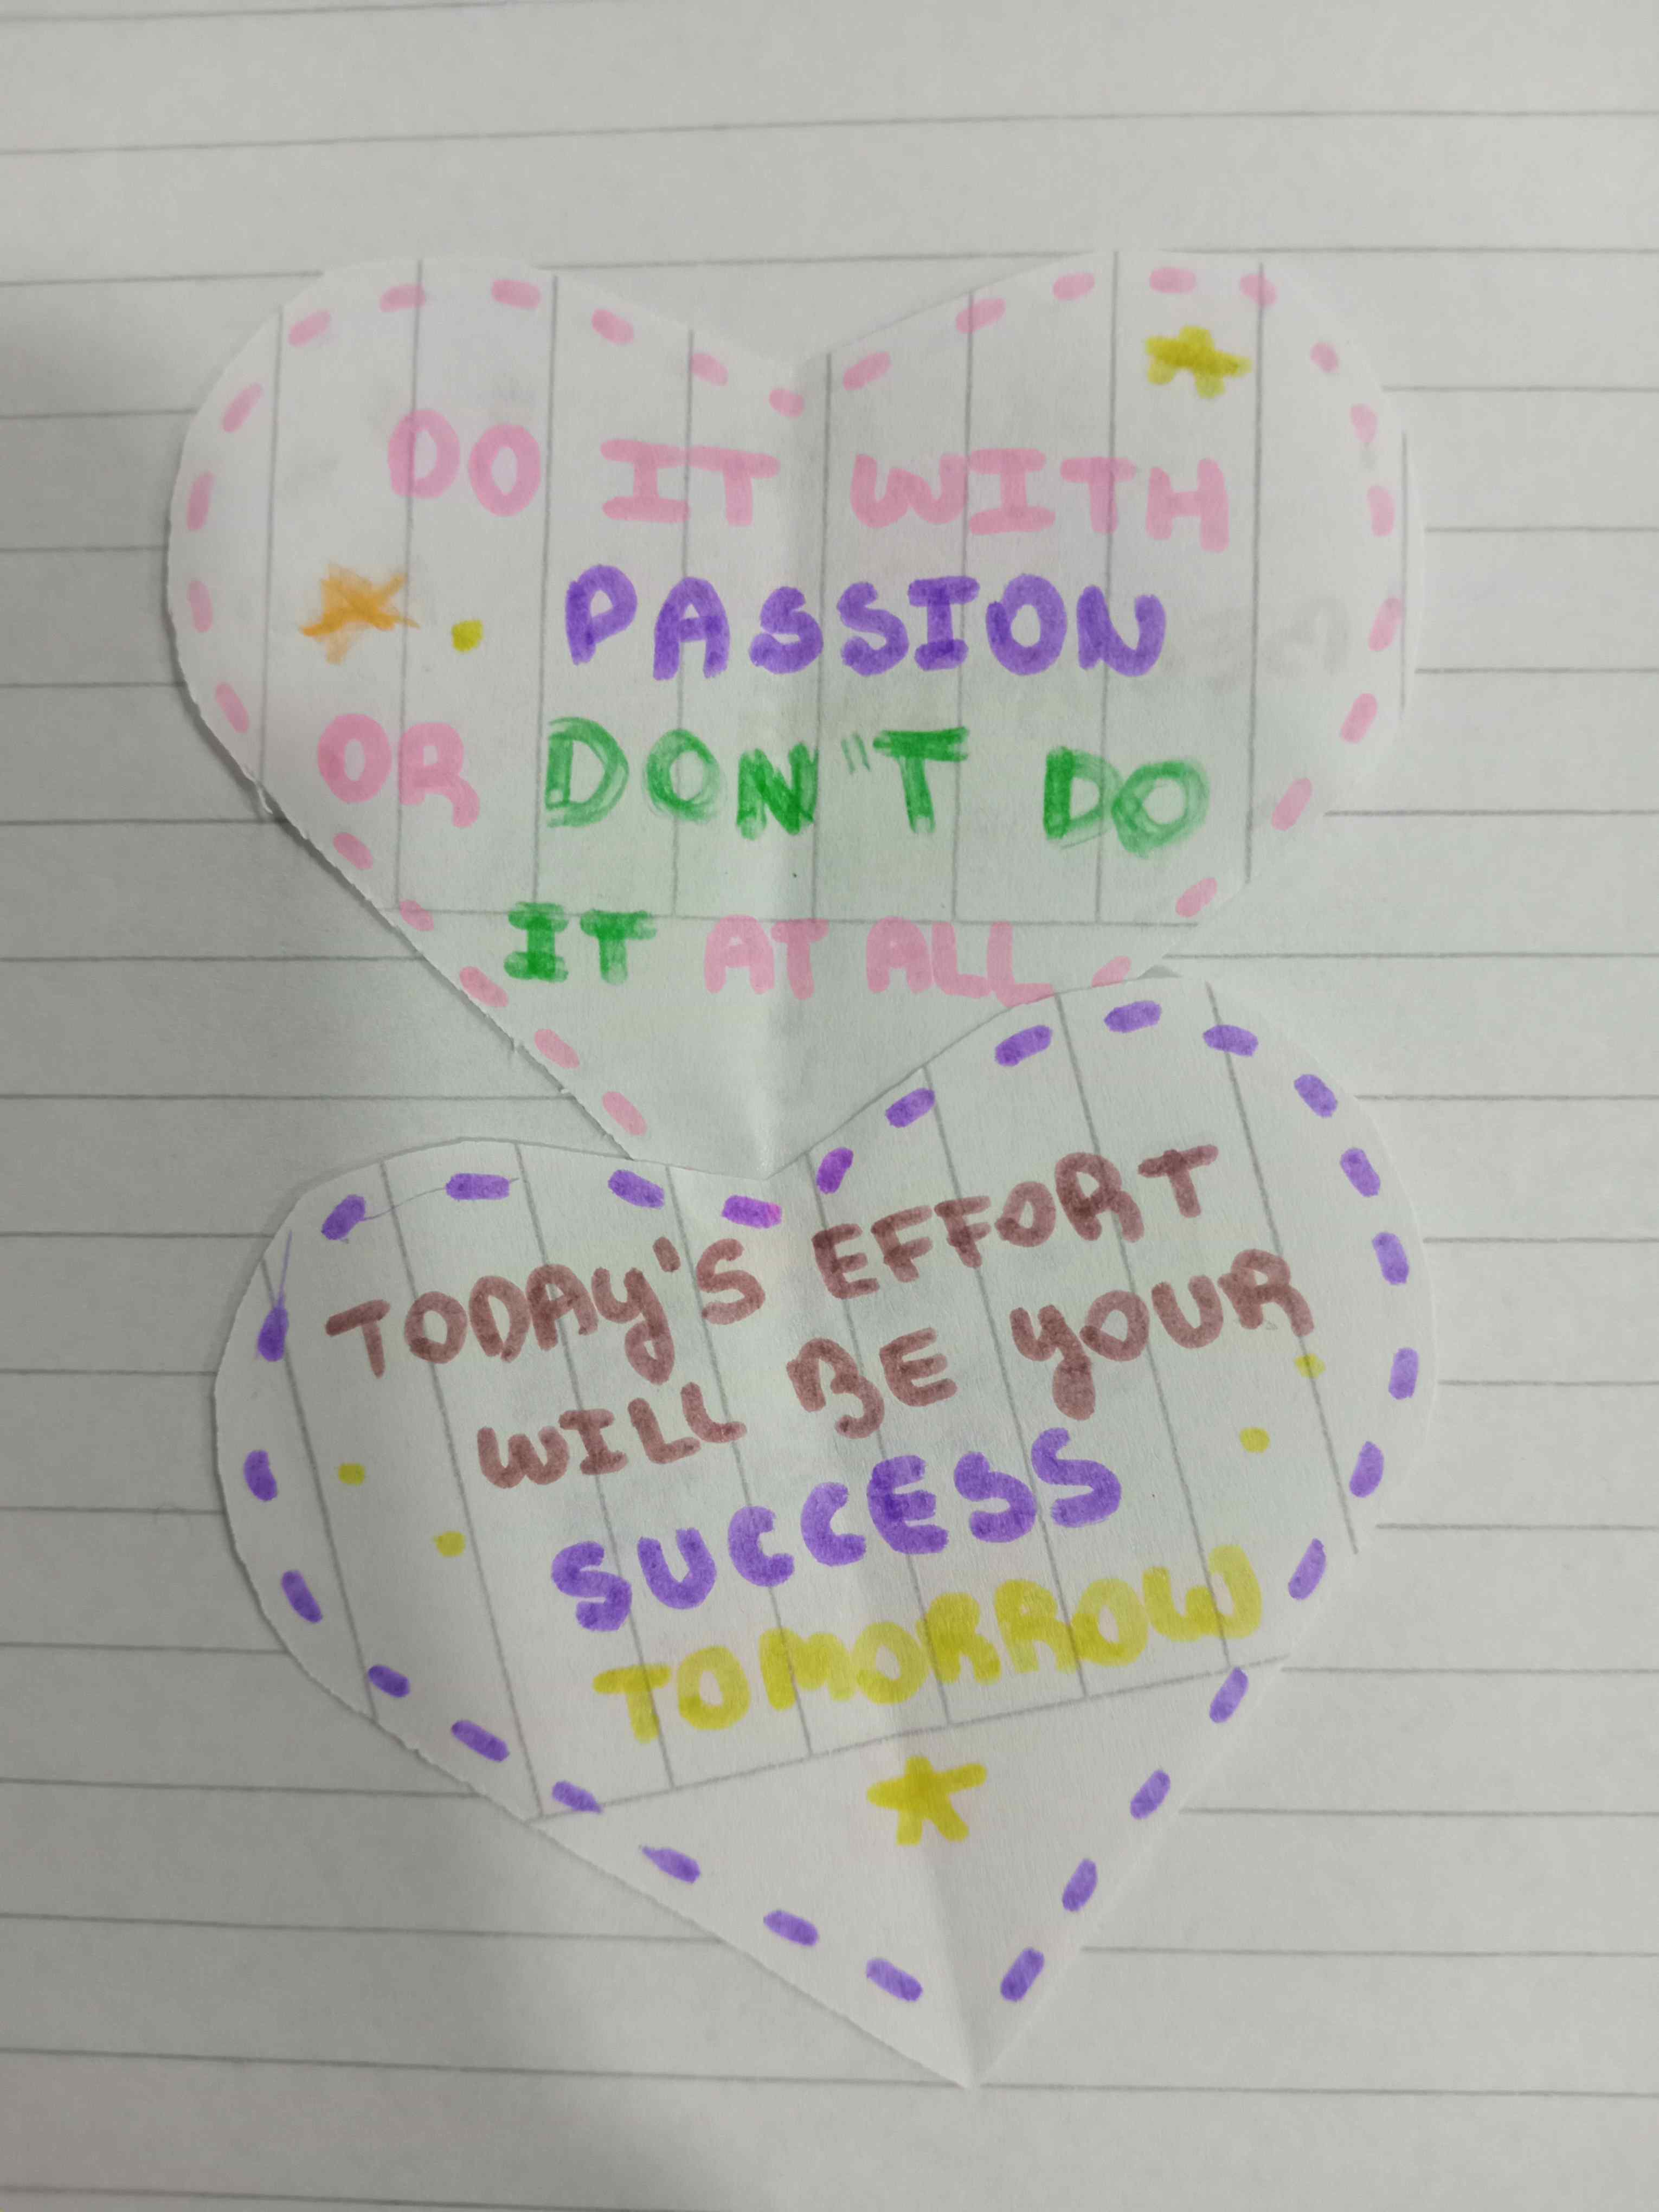 DO IT WITH
PASSION
OR DON"T DO
IT AT ALL
TODAY'S EFFORT
WILL BE YOUR
SUCCESS
TOMORROW